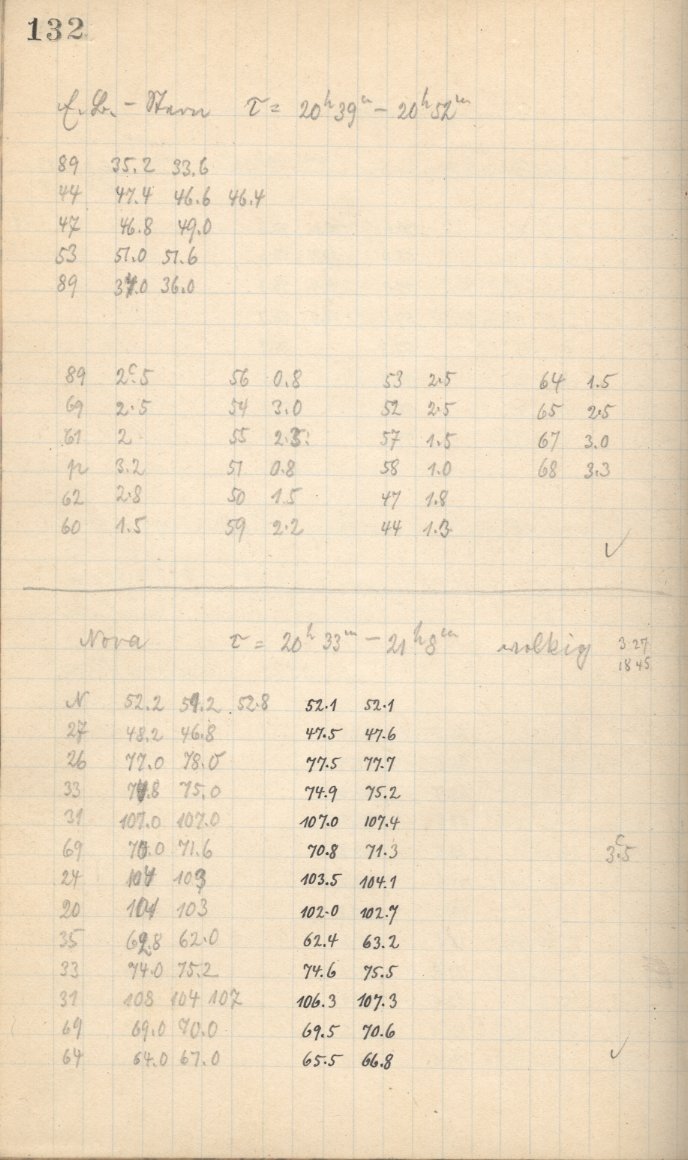 132
τ = 20h 39m – 20h 52m
89 35.2 33.6
44 47.4 46.6 46.4
47 46.8 49.0
53 51.0 51.6
89 37.0 36.0
89 2c.5 56 0.8 53 2.5 64 1.5
69 2.5 54 3.0 52 2.5 65 2.5
61 2 55 2.5: 57 1.5 67 3.0
p 3.2 51 0.8 58 1.0 68 3.3
62 2.8 50 1.5 47 1.8
60 1.5 59 2.2 44 1.3
✓
Nova τ = 20h 33m – 21h 8m wolkig 3.27
18 45
N 52.2 51.2 52.8 52.1 52.1
27 48.2 46.8 47.5 47.6
26 77.0 78.0 77.5 77.7
33 74.8 75.0 74.9 75.2
31 107.0 107.0 107.0 107.4
69 70.0 71.6 70.8 71.3 3c.5
24 104 103 103.5 104.1
20 101 103 102.0 102.7
35 62.8 62.0 62.4 63.2
33 74.0 75.2 74.6 75.5
31 108 104 107 106.3 107.3
69 69.0 70.0 69.5 70.6
64 64.0 67.0 65.5 66.8 ✓